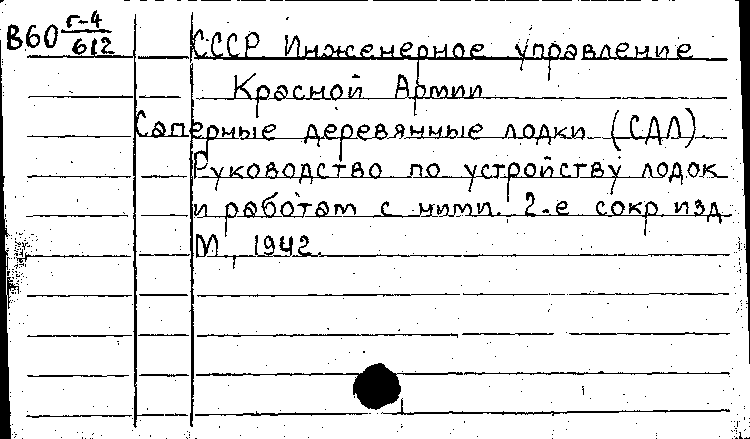 В60 г-4/612
СССР Инженерное управление
Красной Армии
Саперные деревянные лодки (СДЛ).
Руководство по устройству лодок
и работам с ними. 2-е сокр. изд.
М., 1942.